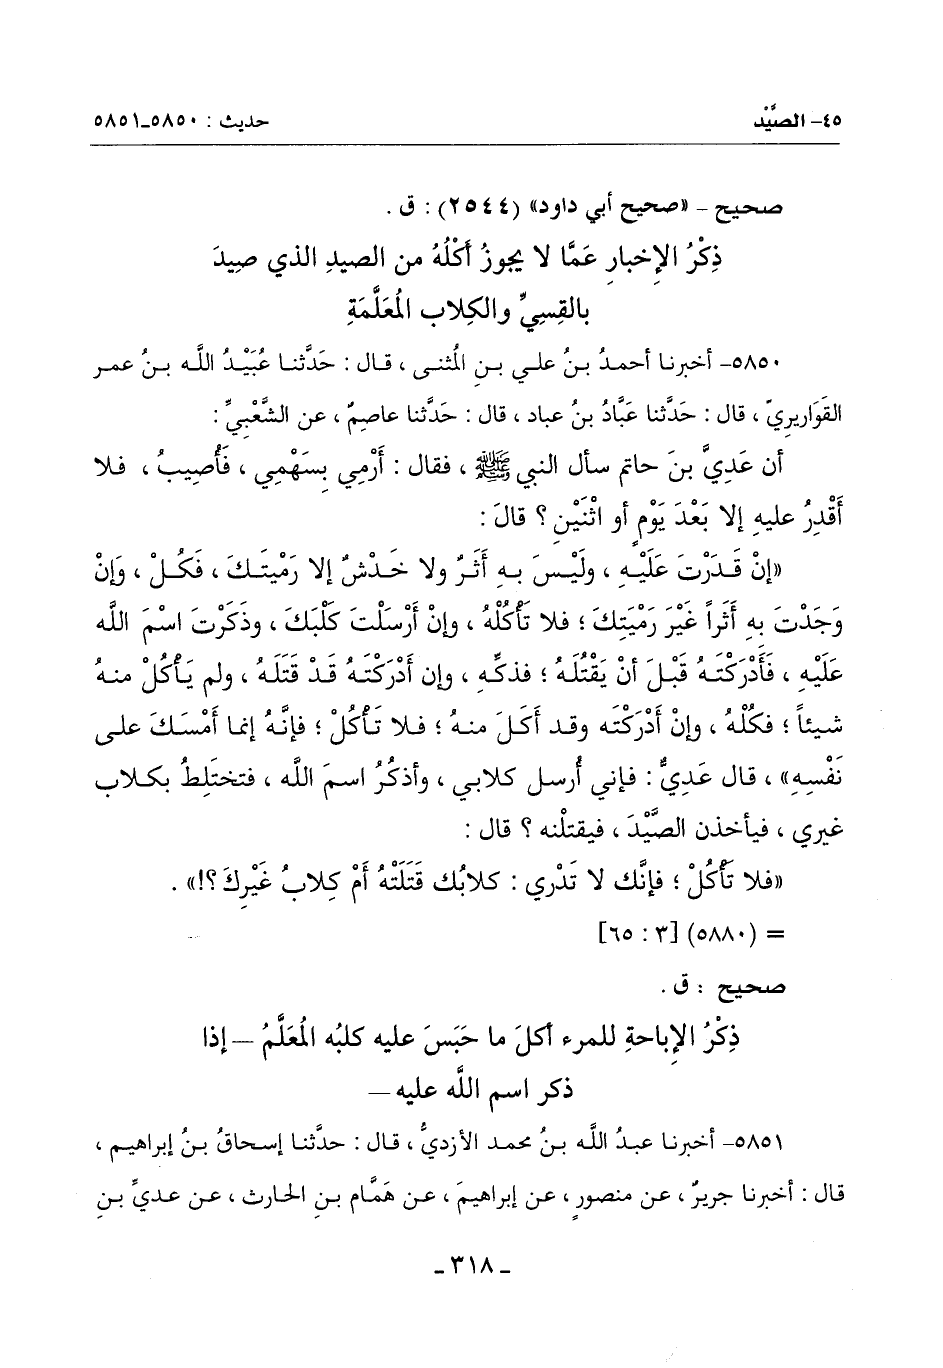 ٤٥- الصَّيْد حديث : ٥٨٥٠ـ٥٨٥١
صحيح - «صحيح أبي داود» (٢٥٤٤) : ق .
ذِكْرُ الإِخبارِ عَمَّا لا يجوزُ أَكْلُهُ من الصيدِ الذي صِيدَ
بالقِسِيِّ والكِلابِ المُعَلَّمَةِ
٥٨٥٠- أخبرنا أحمدُ بنُ علي بنِ المُثنى ، قال : حَدَّثنا عُبَيْدُ اللَّه بنُ عمر
القَوَاريريّ ، قال : حَدَّثنا عَبَّادُ بنُ عباد ، قال : حَدَّثنا عاصِمٌ ، عن الشَّعْبِيِّ :
أن عَدِيَّ بنَ حاتمٍ سأل النبي ﷺ ، فقال : أَرْمِي بِسَهْمِي ، فَأُصِيبُ ، فلا
أَقْدِرُ عليهِ إلا بَعْدَ يَوْمٍ أو اثْنَيْنِ ؟ قالَ :
«إنْ قَدَرْتَ عَلَيْهِ ، ولَيْسَ بهِ أَثَرٌ ولا خَدْشٌ إلا رَمْيَتَكَ ، فَكُلْ ، وإنْ
وَجَدْتَ بِهِ أَثَراً غَيْرَ رَمْيَتِكَ ؛ فلا تَأْكُلْهُ ، وإنْ أَرْسَلْتَ كَلْبَكَ ، وذَكَرْتَ اسْمَ اللَّه
عَلَيْهِ ، فَأَدْرَكْتَهُ قَبْلَ أنْ يَقْتُلَهُ ؛ فذكِّهِ ، وإن أَدْرَكْتَهُ قَدْ قَتَلَهُ ، ولم يَأْكُلْ منهُ
شيئاً ؛ فكُلْهُ ، وإنْ أَدْرَكْتَه وقد أَكَلَ منهُ ؛ فلا تَأْكُلْ ؛ فإنَّهُ إنما أَمْسَكَ على
نَفْسِهِ» ، قال عَدِيٌّ : فإني أُرسل كلابي ، وأذكُرُ اسمَ اللَّه ، فتختَلِطُ بكلابِ
غيري ، فيأخذن الصَّيْدَ ، فيقتلْنه ؟ قال :
«فلا تَأْكُلْ ؛ فإنَّك لا تَدْري : كلابُك قَتَلَتْهُ أَمْ كِلابُ غَيْرِكَ ؟!» .
= (٥٨٨٠) [٣ : ٦٥]
صحيح : ق .
ذِكْرُ الإِباحةِ للمرءِ أكلَ ما حَبَسَ عليه كلبُه المُعَلَّمُ – إذا
ذكر اسم اللَّه عليه –
٥٨٥١- أخبرنا عبدُ اللَّه بنُ محمد الأزديُّ ، قال : حدَّثنا إسحاقُ بنُ إبراهيم ،
قال : أخبرنا جريرٌ ، عن منصورٍ ، عن إبراهيمَ ، عن هَمَّام بنِ الحارث ، عن عديِّ بنِ
ـ ٣١٨ ـ